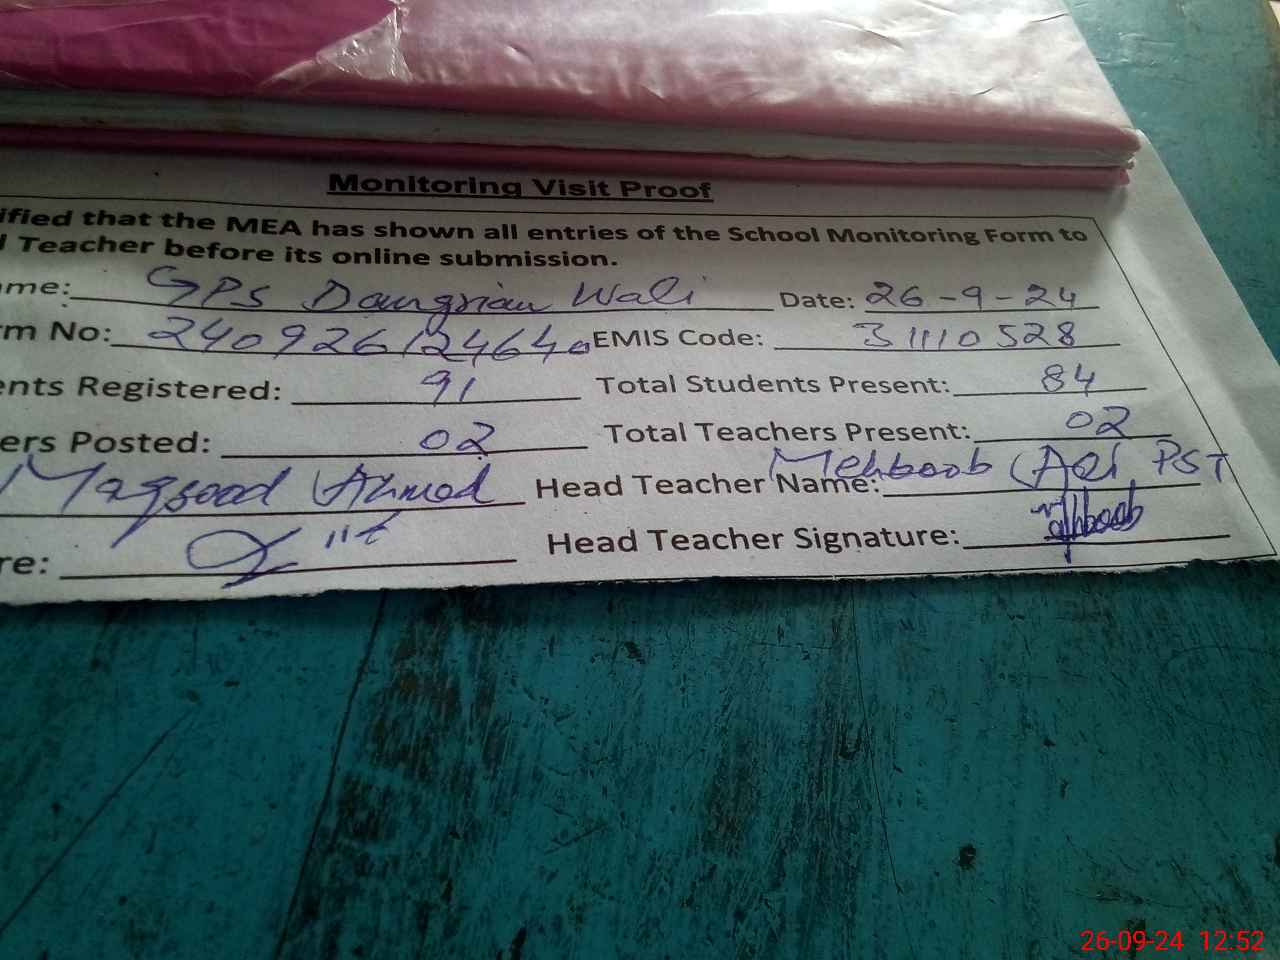 Monitoring Visit Proof
ified that the MEA has shown all entries of the School Monitoring Form to
Teacher before its online submission.
me: GPS Dangrian Wali Date: 26-9-24
rm No: 240926124640 EMIS Code: 31110528
ents Registered: 91 Total Students Present: 84
ers Posted: 02 Total Teachers Present: 02
Maqsood Ahmed Head Teacher Name: Mehboob Ali PST
re: Head Teacher Signature: Mehboob
26-09-24 12:52